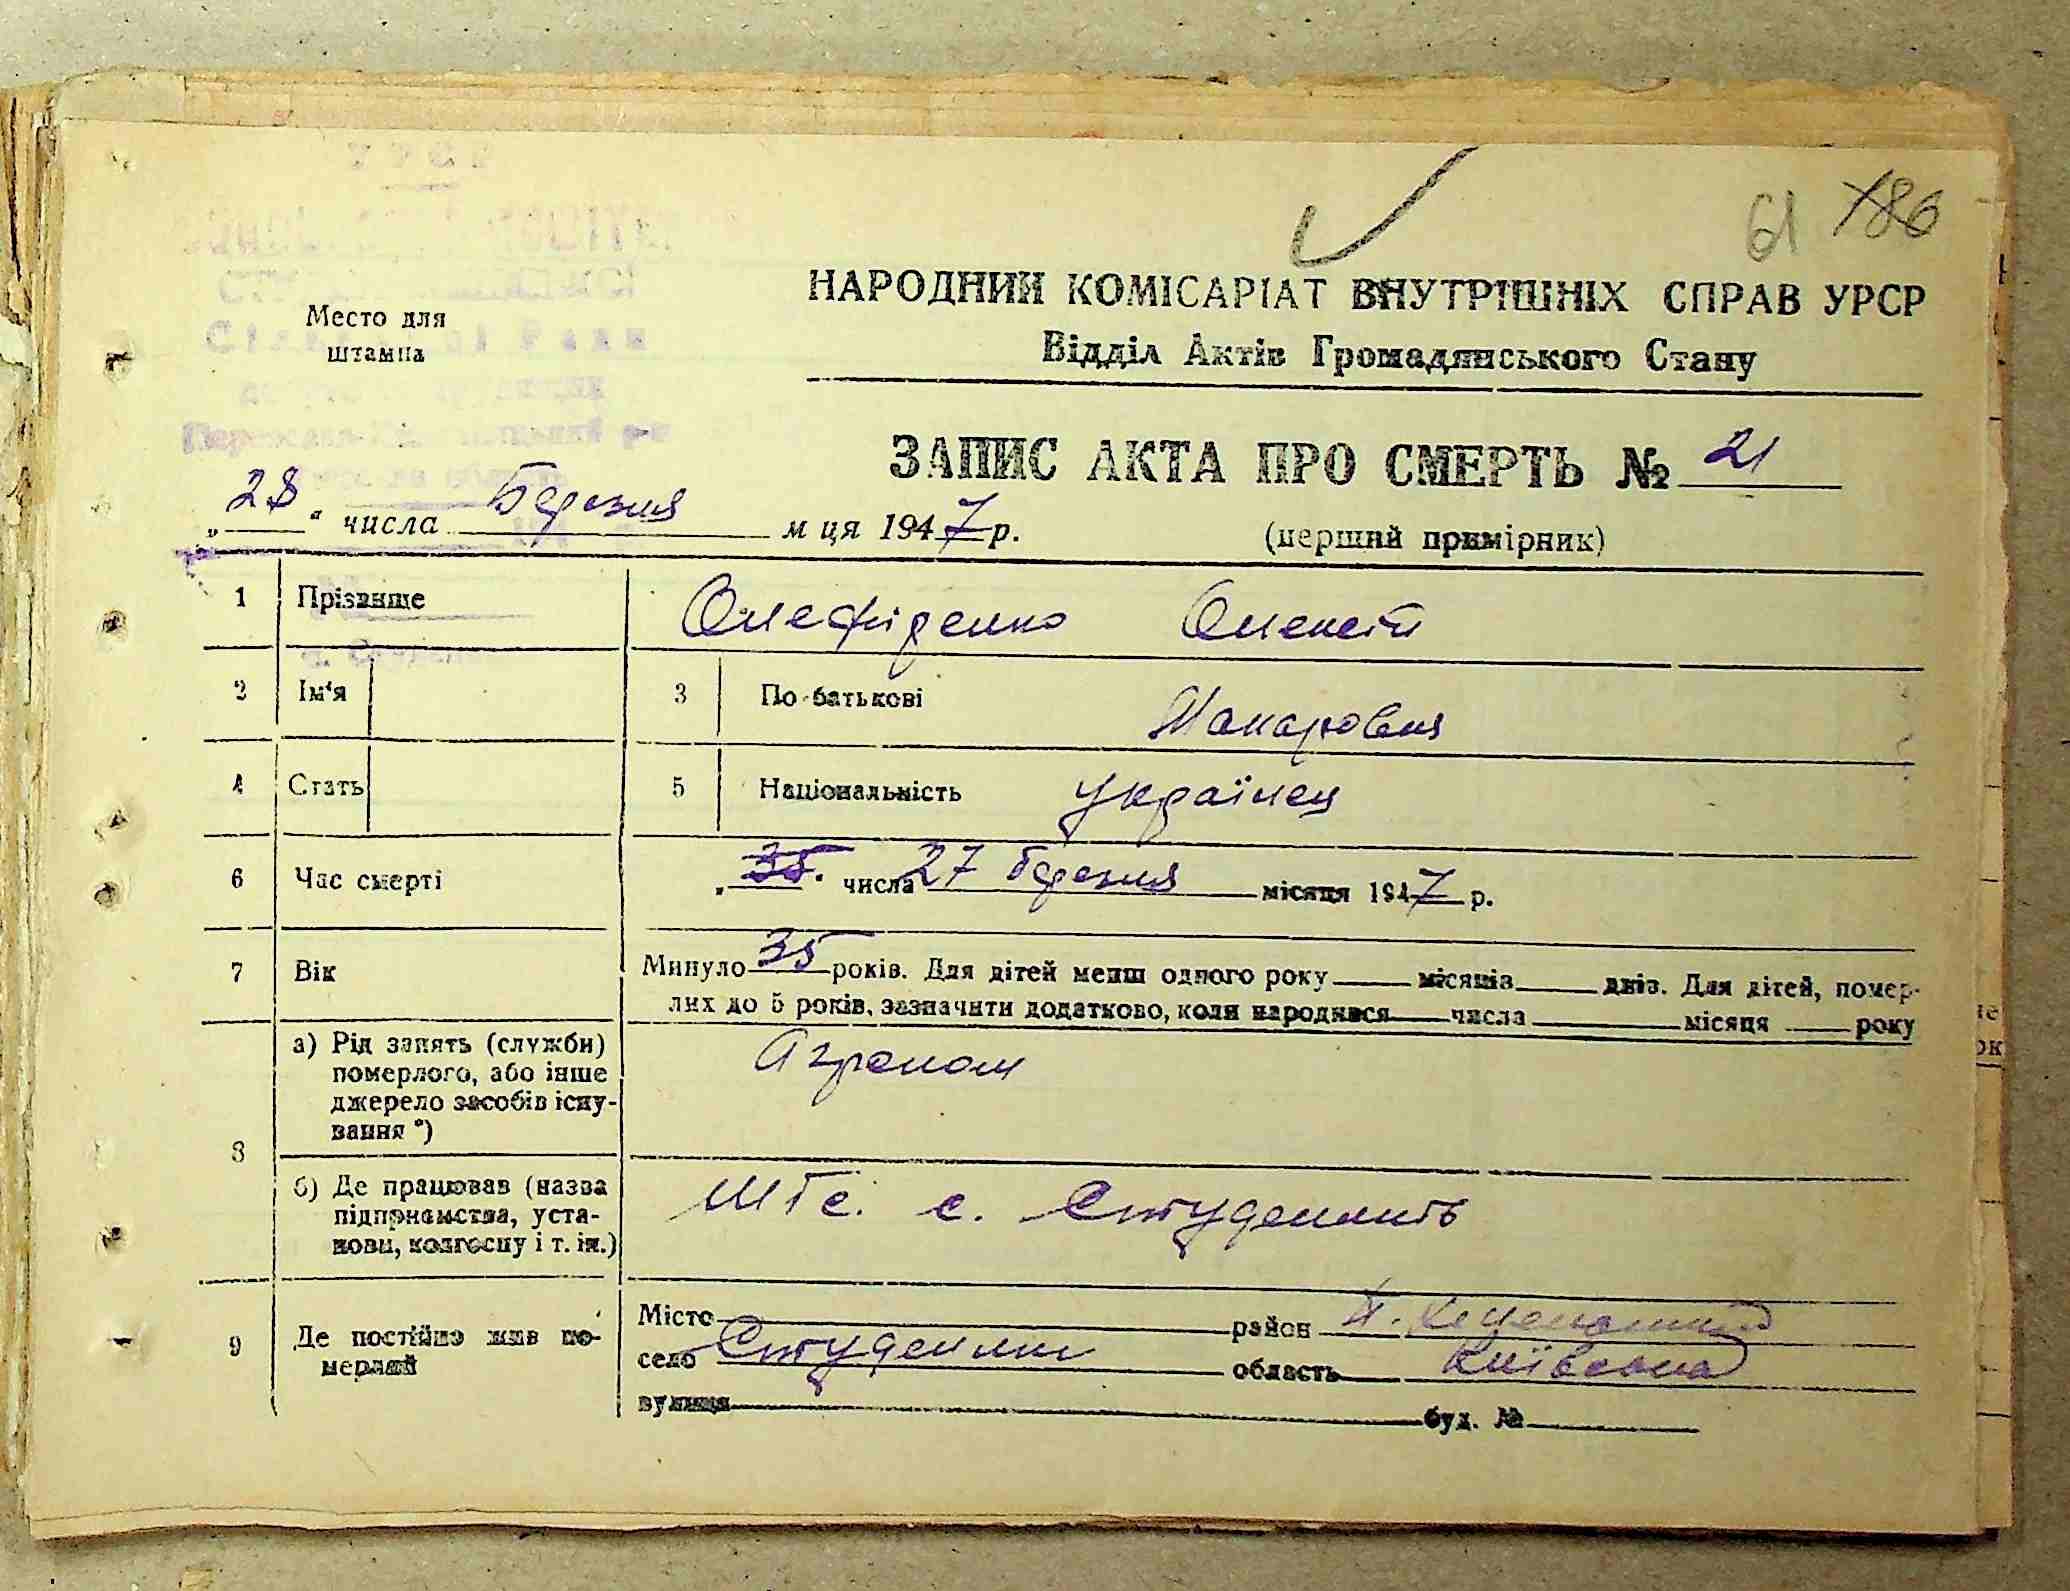 61 186
НАРОДНИЙ КОМІСАРІАТ ВНУТРІШНІХ СПРАВ УРСР
Відділ Актів Громадянського Стану
Место для
штампа
УРСР
Сільської Ради
ЗАПИС АКТА ПРО СМЕРТЬ № 21
„28“ числа Березня м ця 1947 р.
(перший примірник)
1 Прізвище Олефіренко Олексій
2 Ім'я 3 По-батькові Макарович
4 Стать 5 Національність українец
6 Час смерті „35“ числа 27 березня місяця 1947 р.
7 Вік Минуло 35 років. Для дітей менш одного року місяців днів. Для дітей, помер-
лих до 5 років, зазначити додатково, коли народився числа місяця року
8 а) Рід занять (служби)
померлого, або інше
джерело засобів існу-
вання *)
Агроном
б) Де працював (назва
підприємства, уста-
нови, колгоспу і т. ін.)
МТС. с. Студенить
9 Де постійно жив по-
мерлий
Місто район
село область Київська
вулиця буд. №